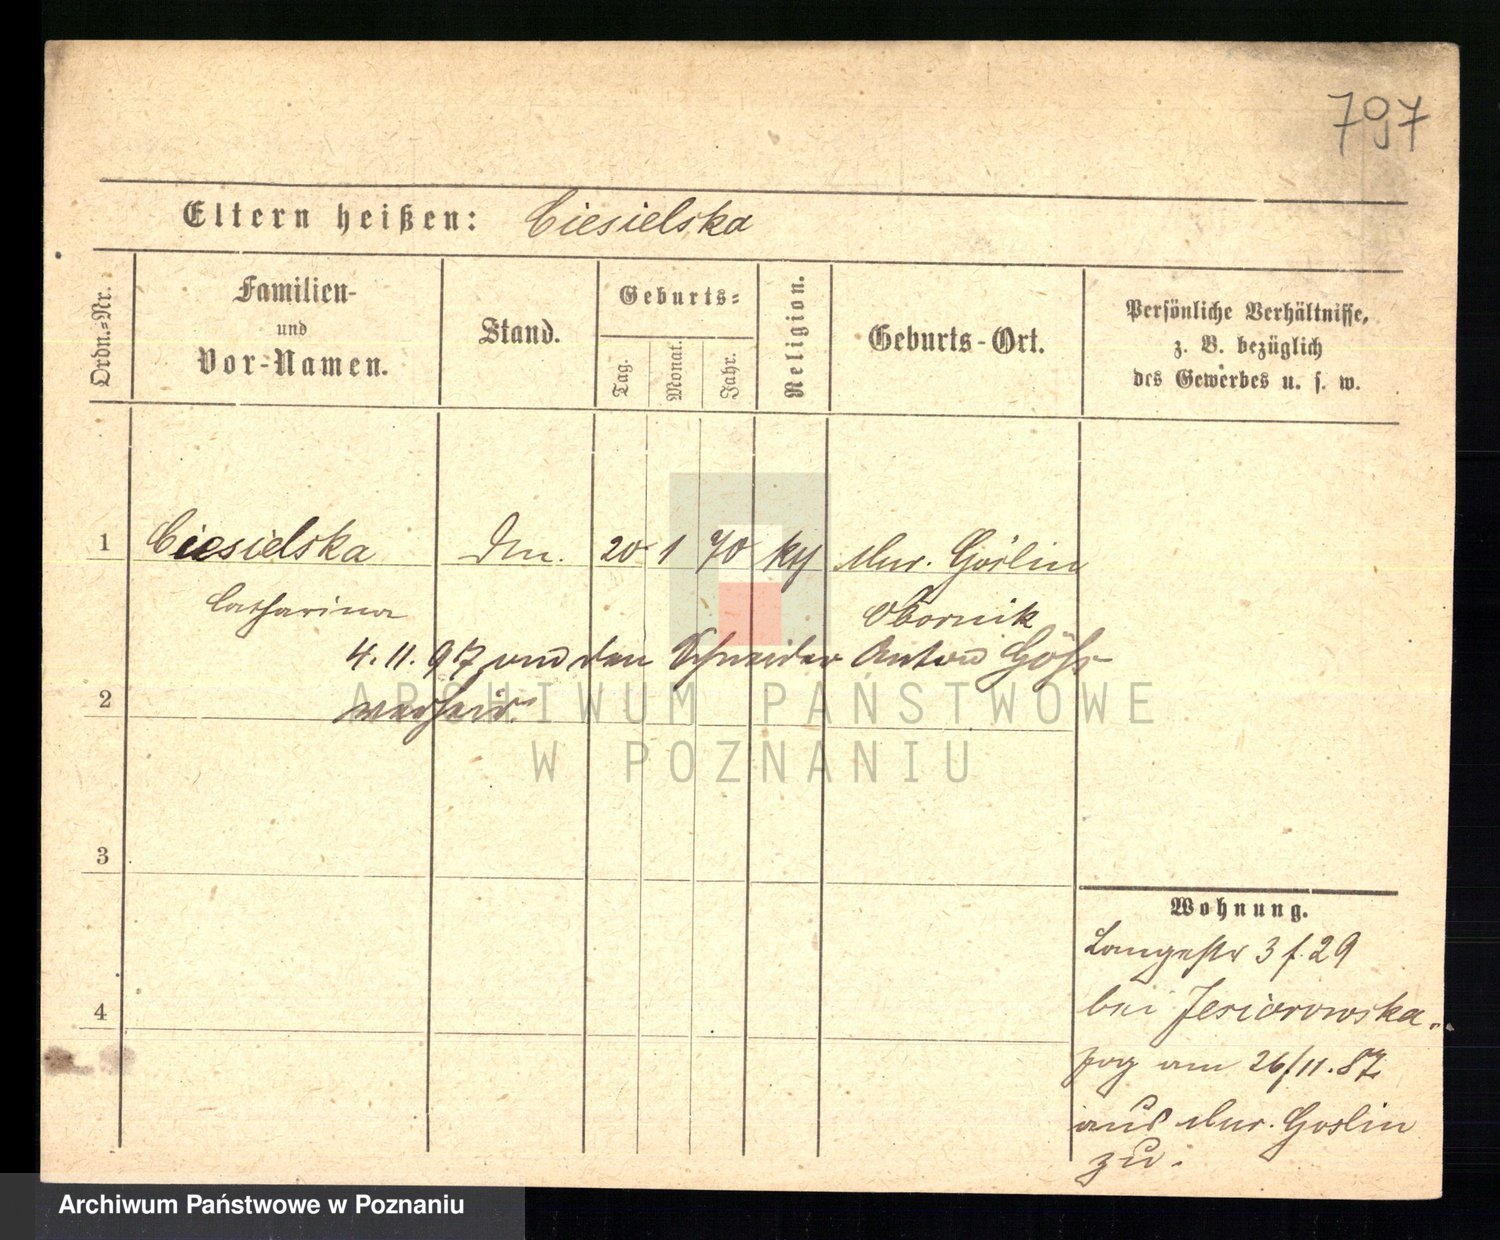 797
Eltern heißen: Ciesielska
Ordn.=Nr.
Familien-
und
Vor-Namen.
Stand.
Geburts=
Tag.
Monat.
Jahr.
Religion.
Geburts-Ort.
Persönliche Verhältnisse,
z. B. bezüglich
des Gewerbes u. s. w.
1 Ciesielska 20 1 70 kth Mur. Goslin
Catharina Obornik
4. 11. 97 den Schneider Anton
2 verheir.
3
4
Wohnung.
Langestr 3 f. 29
bei Jesiorowska
zog am 26/11. 87
aus Mur. Goslin
zu.
ARCHIWUM PAŃSTWOWE
W POZNANIU
Archiwum Państwowe w Poznaniu